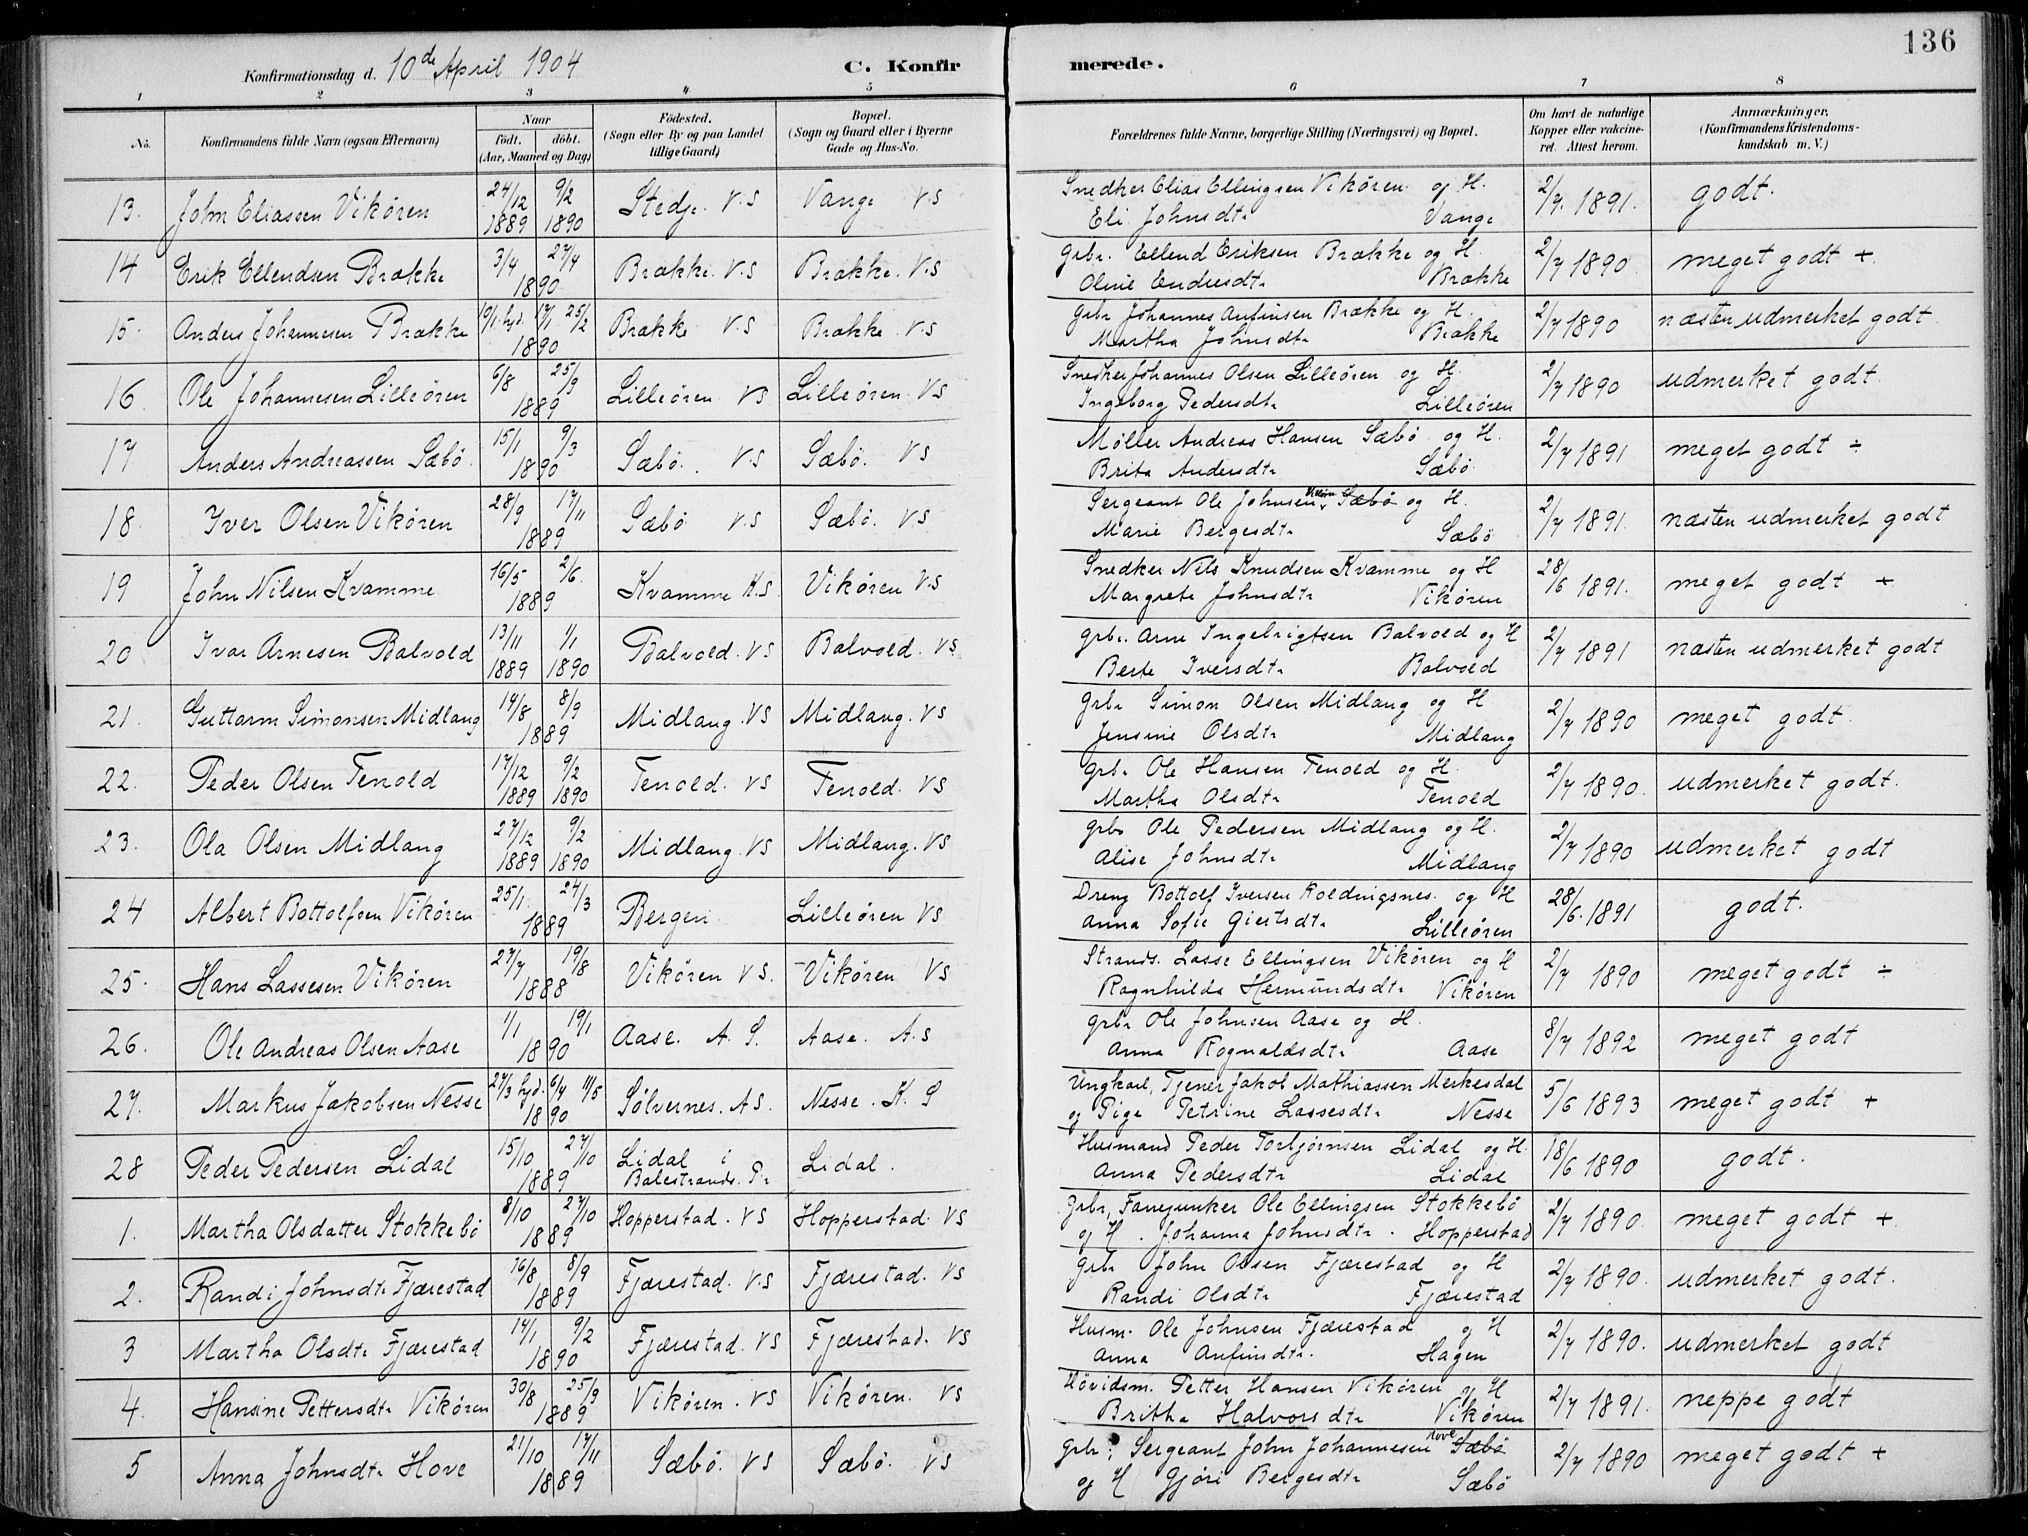 136
Konfirmationsdag d. 10de April 1904 C. Konfirmerede.
1 2 3 4 5 6 7 8
No. Konfirmandens fulde Navn (ogsaa Efternavn) Naar födt. döbt. (Aar, Maaned og Dag) Födested. (Sogn eller By og paa Landet tillige Gaard) Bopæl. (Sogn og Gaard eller i Byerne Gade og Hus-No. Forældrenes fulde Navne, borgerlige Stilling (Næringsvei) og Bopæl. Om havt de naturlige Kopper eller vakcineret. Attest herom. Anmærkninger. (Konfirmandens Kristendomskundskab m. V.)
13. John Eliassen Vikören 24/12 1889 9/2 1890 Stedje. V.S Vange V S Snedker Elias Ellingsen Vikören. og H. Eli Johnsdtr Vange 2/7. 1891. godt.
14 Erik Ellendsen Brække 3/4 27/4 1890 Brække. V.S Brække. V.S Grbr. Ellend Eriksen Brække og H. Oline Endresdtr Brække 2/7 1890. meget godt +.
15. Anders Johannesen Brække 10/1 hjd. 17/1 25/2 1890 Brække V S Brække. V.S Grbr Johannes Anfinsen Brække og H. Martha Johnsdtr Brække 2/7 1890 næsten udmerket godt.
16. Ole Johannesen Lilleören 6/8 25/9 1889 Lilleören. VS Lilleören. VS Snedker Johannes Olsen Lilleören og H. Ingeborg Pedersdtr Lilleören 2/7 1890 udmerket godt.
17 Anders Andreassen Sæbö. 15/1 9/3 1890 Sæbö. V.S Sæbö. VS Möller Andreas Hansen Sæbö. og H. Brita Andersdtr Sæbö 2/7 1891 meget godt ÷
18. Iver Olsen Vikören 28/9 17/11 1889 Sæbö V.S Sæbö. VS Sergeant Ole Johnsen Vikören Sæbö og H. Marie Bergesdtr Sæbö 2/7 1891. næsten udmerket godt
19 John Nilsen Kvamme 16/5 2/6. 1889 Kvamme K.S Vikören V.S Snedker Nils Knudsen Kvamme og H Margrete Johnsdtr Vikören 28/6 1891. meget godt +
20 Ivar Arnesen Balvold 13/11 1889 1/1 1890 Balvold. VS Balvold. VS Grbr. Arne Ingebrigtsen Balvold og H Berte Iversdtr Balvold 2/7 1891 næsten udmerket godt
21. Guttorm Simonsen Midlang 14/8 8/9 1889 Midlang. VS Midlang. VS Grbr Simon Olsen Midlang og H Jensine Olsdtr Midlang 2/7 1890 meget godt.
22. Peder Olsen Tenold 17/12 1889 9/2 1890 Tenold. VS Tenold. VS Grbr Ole Hansen Tenold og H. Martha Olsdtr Tenold 2/7 1890. udmerket godt.
23. Ola Olsen Midlang 27/12 1889 9/2 1890 Midlang. VS Midlang. VS Grbr Ole Pedersen Midlang og H. Alise Johnsdtr Midlang 2/7 1890 udmerket godt
24 Albert Bottolfsen Vikören 25/1. 24/3 1889 Bergen. Lilleören VS Dreng Bottolf Iversen Koldingsnes. og H Anna Sofie Giertsdtr Lilleören 28/6. 1891 godt.
25. Hans Lassesen Vikören 27/7 19/8 1888 Vikören V S. Vikören VS Strands. Lasse Ellingsen Vikören og H Ragnhilda Hermundsdtr Vikören 2/7 1890 meget godt ÷
26. Ole Andreas Olsen Aase 1/1 19/1 1890 Aase. A. S. Aase. A.S Grbr Ole Johnsen Aase og H. Anna Rognaldsdtr Aase 8/7 1892 meget godt
27. Markus Jakobsen Nesse 27/3 hjd. 6/4 11/5 1890 Sölvernes. A S. Nesse. K. S Ungkarl, Tjener Jakob Mathiassen Merkesdal og Pige Petrine Lassesdtr Nesse 5/6 1893 meget godt +
28 Peder Pedersen Lidal 15/10 27/10 1889 Lidal i Balestrands. Pr Lidal. Husmand Peder Torbjörnsen Lidal og H. Anna Pedersdtr Lidal 18/6 1890 godt.
1. Martha Olsdatter Stokkebö 8/10 27/10 1889 Hopperstad. VS Hopperstad. VS Grbr, Fanejunker Ole Ellingsen Stokkebö og H. Johanna Johnsdtr. Hopperstad 2/7 1890. meget godt +.
2. Randi Johnsdtr Fjærestad 16/8 8/9 1889 Fjærestad. V.S Fjærestad. VS Grbr John Olsen Fjærestad og H Randi Olsdtr Fjærestad 2/7 1890. udmerket godt.
3 Martha Olsdtr Fjærestad 14/1 9/2 1890 Fjærestad. VS Fjærestad. VS Husm. Ole Johnsen Fjærestad og H Anna Anfinsdtr. Hagen 2/7 1890. udmerket godt
4. Hansine Pettersdtr Vikören 30/8 25/9 1889 Vikören. VS Vikören. VS Hövidsm. Petter Hansen Vikören og H Britha Halvorsdtr Vikören 2/7 1891. neppe godt
5 Anna Johnsdtr Hove 21/10 17/11 1889 Sæbö. VS Sæbö. VS Grbr. Sergeant John Johannesen Hove Sæbö og H Gjöri Bergesdtr Sæbö 2/7 1890 meget godt +